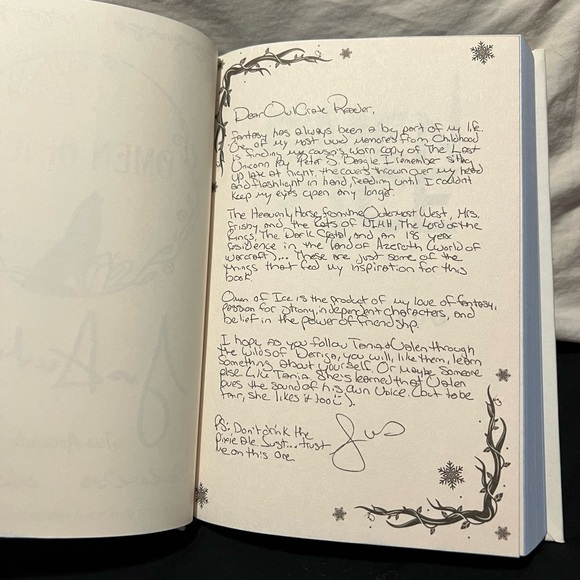 Dear OwlCrate Reader,
Fantasy has always been a big part of my life.
One of my most vivid memories from childhood
is finding my cousin's worn copy of The Last
Unicorn by Peter S. Beagle. I remember sitting
up late at night, the covers thrown over my head
and flashlight in hand, reading until I couldn't
keep my eyes open any longer.
The Heavenly Horse from the Outermost West, Mrs.
Frisby and the Rats of NIMH, The Lord of the
Rings, The Dark Crystal, and an 18 year
residence in the land of Azeroth (World of
Warcraft)... These are just some of the
things that fed my inspiration for this
book.
Queen of Ice is the product of my love of fantasy,
passion for strong, independent characters, and
belief in the power of friendship.
I hope as you follow Tania & Valen through
the wilds of you will, like them, learn
something about yourself. Or maybe someone
else. Like Tania. She's learned that Valen
loves the sound of his own voice. (but to be
fair, she likes it too).
PS: Don't drink the
Pixie Ale. Just... trust
me on this one.